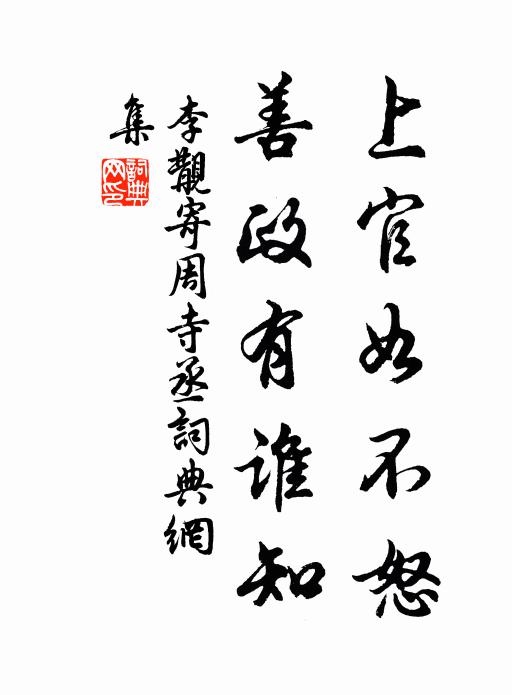 上官如不怒
善政有誰知
李覯寄周寺丞詞典網
集
詞典
网印